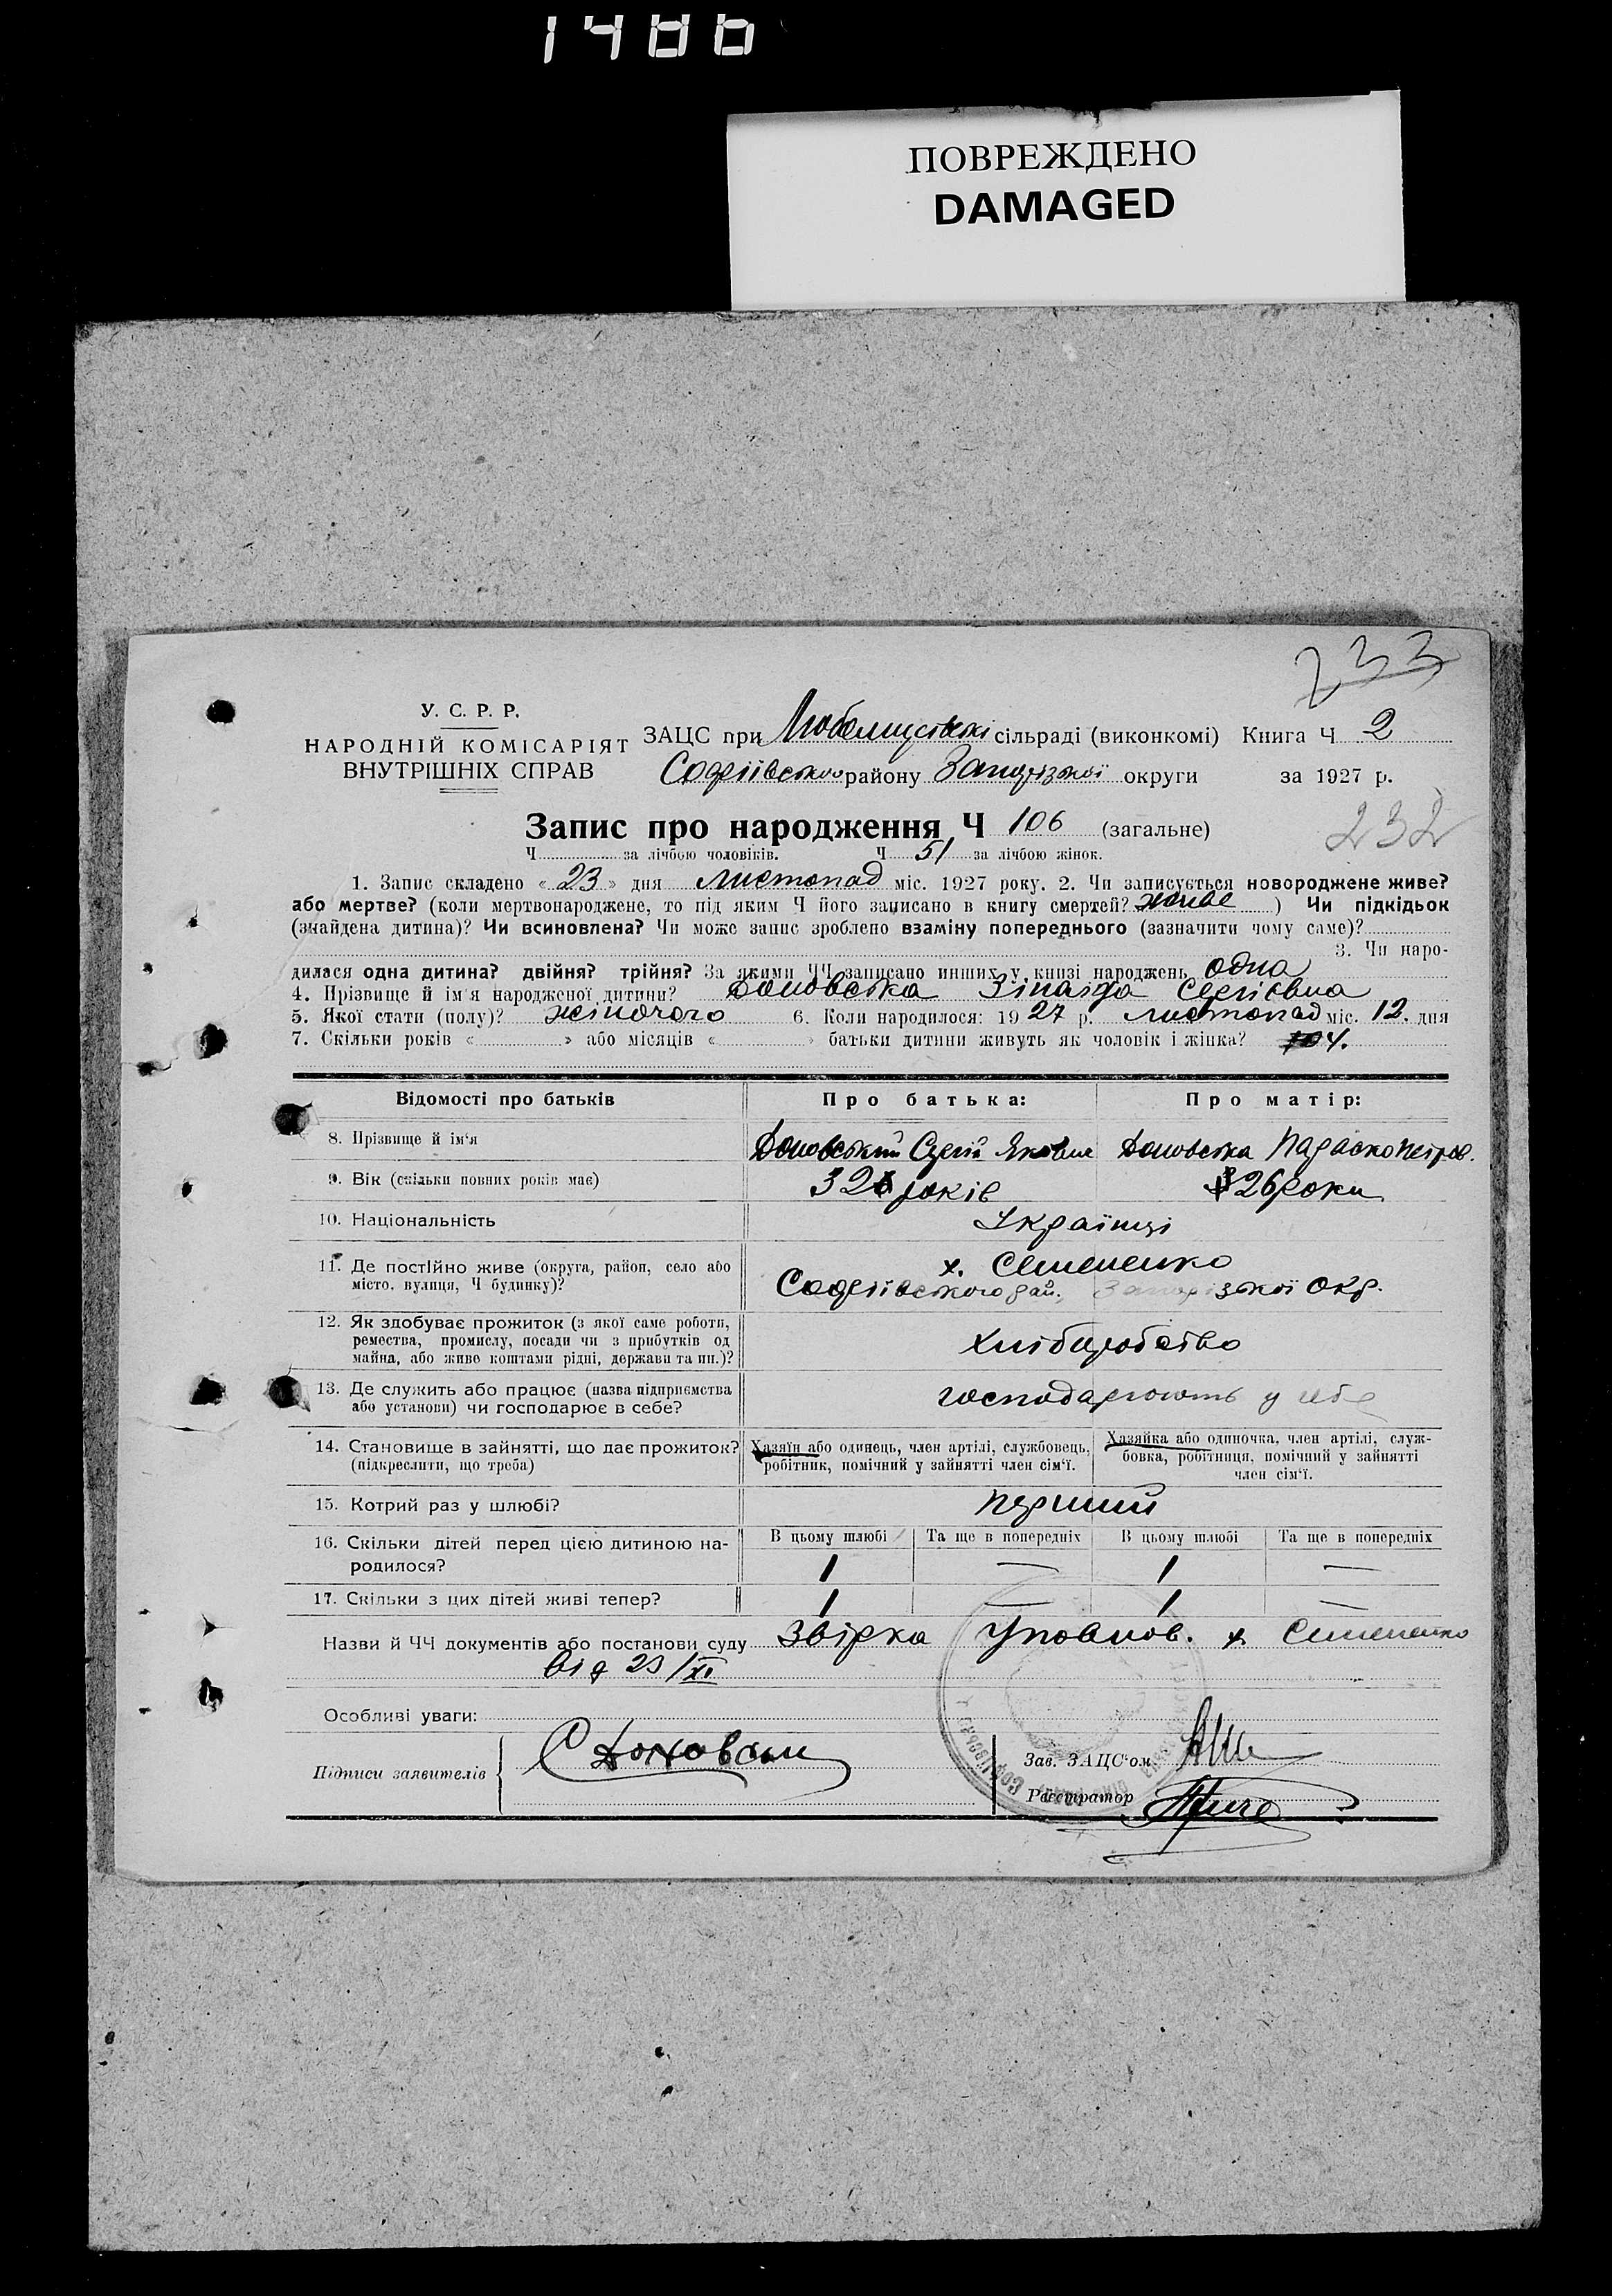 1486
ПОВРЕЖДЕНО
DAMAGED
233
У. С. Р. Р.
НАРОДНІЙ КОМІСАРІЯТ
ВНУТРІШНІХ СПРАВ
ЗАЦС при сільраді (виконкомі) Книга Ч 2
Софіївського району Запорізької округи за 1927 р.
Запис про народження Ч 106 (загальне)
232
Ч за лічбою чоловіків. Ч 51 за лічбою жінок.
1. Запис складено « 23 » дня Листопад міс. 1927 року. 2. Чи записується новороджене живе?
або мертве? (коли мертвонароджене, то під яким Ч його записано в книгу смертей? живе ) Чи підкідьок
(знайдена дитина)? Чи всиновлена? Чи може запис зроблено взаміну попереднього (зазначити чому саме)?
3. Чи наро-
дилася одна дитина? двійня? трійня? За якими ЧЧ записано инших у книзі народжень одна
4. Прізвище й ім'я народженої дитини? Доновська Зінаїда Сергієвна
5. Якої стати (полу)? жіночого 6. Коли народилося: 19 27 р. Листопад міс. 12. дня
7. Скільки років « » або місяців « » батьки дитини живуть як чоловік і жінка? 4.
Відомості про батьків
Про батька:
Про матір:
8. Прізвище й ім'я
Доновський Сергій Яковле
Доновська Параско Петров.
9. Вік (скільки повних років має)
32 років
26 роки
10. Національність
Українці
11. Де постійно живе (округа, район, село або
місто, вулиця, Ч будинку)?
х. Семененко
Софіївського рай., Запорізької окр.
12. Як здобуває прожиток (з якої саме роботи,
ремества, промислу, посади чи з прибутків од
майна, або живе коштами рідні, держави та ин.)?
Хлібаробство
13. Де служить або працює (назва підприємства
або установи) чи господарює в себе?
господарюють у себе
14. Становище в зайнятті, що дає прожиток?
(підкреслити, що треба)
Хазяїн або одинець, член артілі, службовець,
робітник, помічний у зайнятті член сім'ї.
Хазяйка або одиночка, член артілі, служ-
бовка, робітниця, помічний у зайнятті
член сім'ї.
15. Котрий раз у шлюбі?
перший
16. Скільки дітей перед цією дитиною на-
родилося?
В цьому шлюбі
Та ще в попередніх
В цьому шлюбі
Та ще в попередніх
1 — 1 —
17. Скільки з цих дітей живі тепер?
1 — 1 —
Назви й ЧЧ документів або постанови суду Звірка Уповнов. х. Семененко
від 23/XI
Особливі уваги:
Підписи заявителів
С Доновськи
Зав. ЗАЦС'ом
Реєстратор